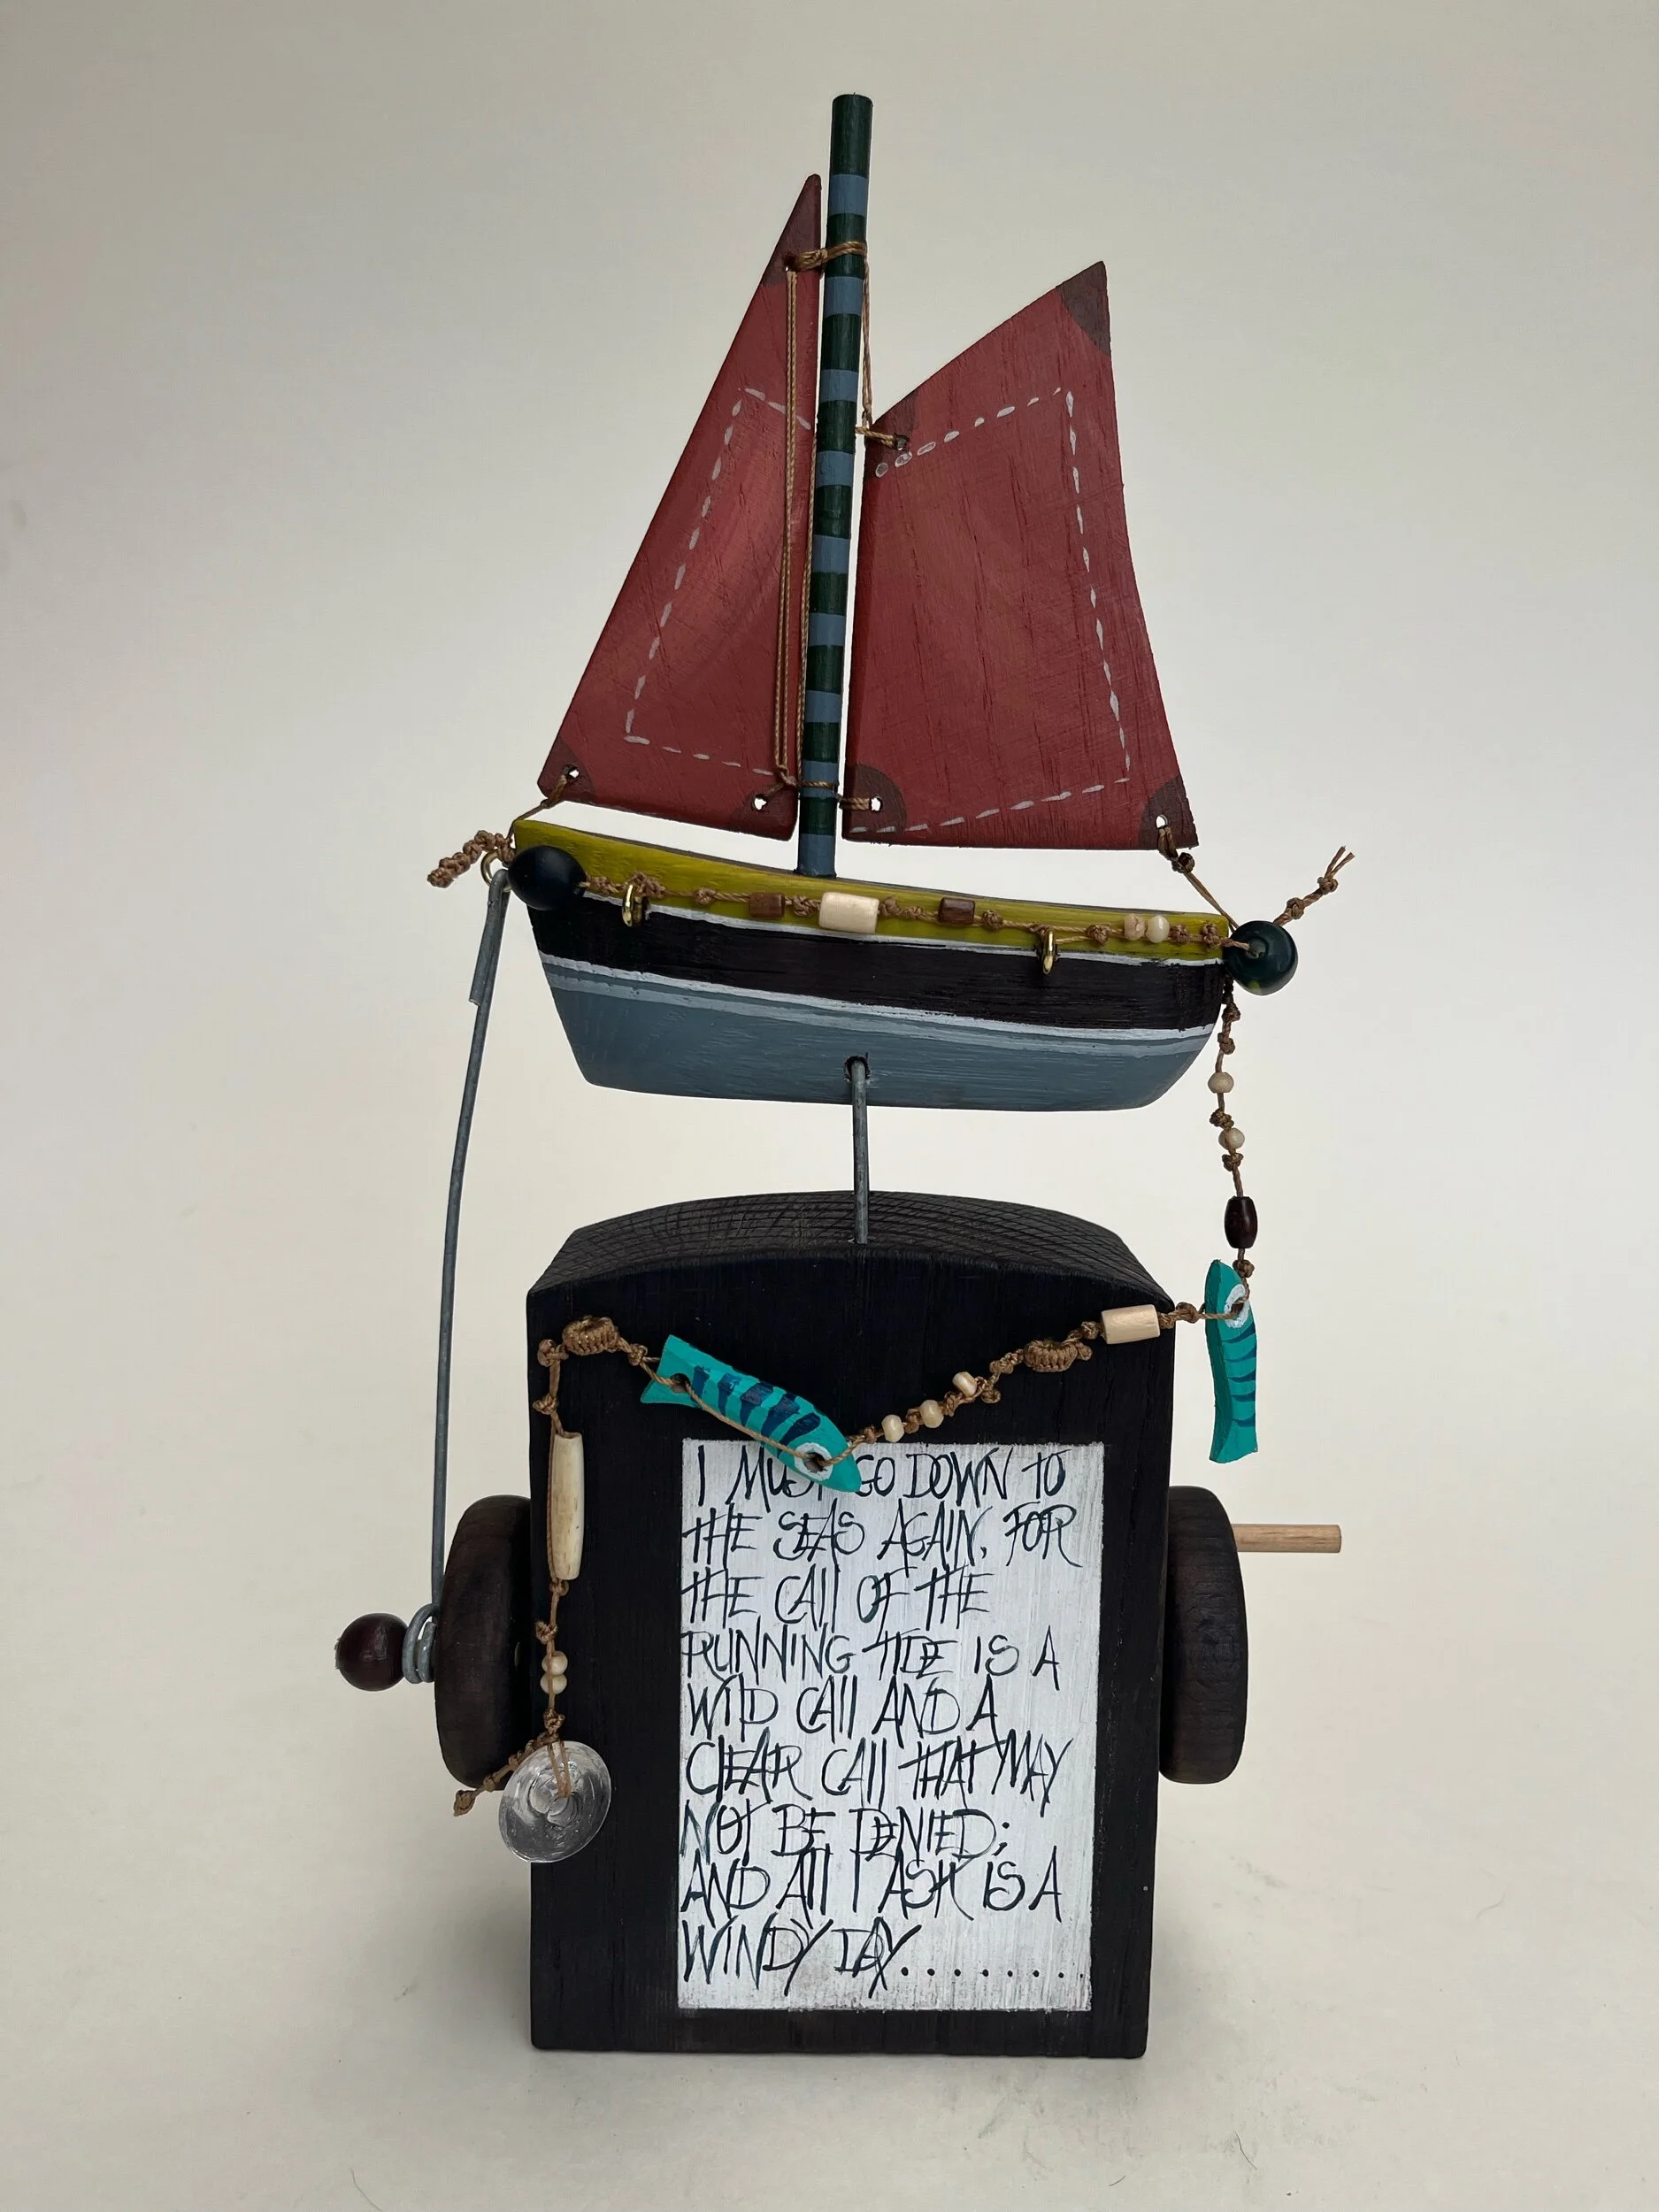 I MUST GO DOWN TO
THE SEAS AGAIN, FOR
THE CALL OF THE
RUNNING TIDE IS A
WILD CALL AND A
CLEAR CALL THAT MAY
NOT BE DENIED;
AND ALL I ASK IS A
WINDY DAY........